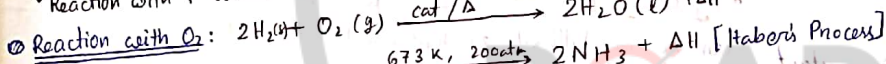 Reaction with
⊙ Reaction with O₂: 2H₂(g) + O₂ (g) cat / Δ → 2H₂O (l)
673 K, 200atm → 2NH₃ + ΔH [Haber's Process]